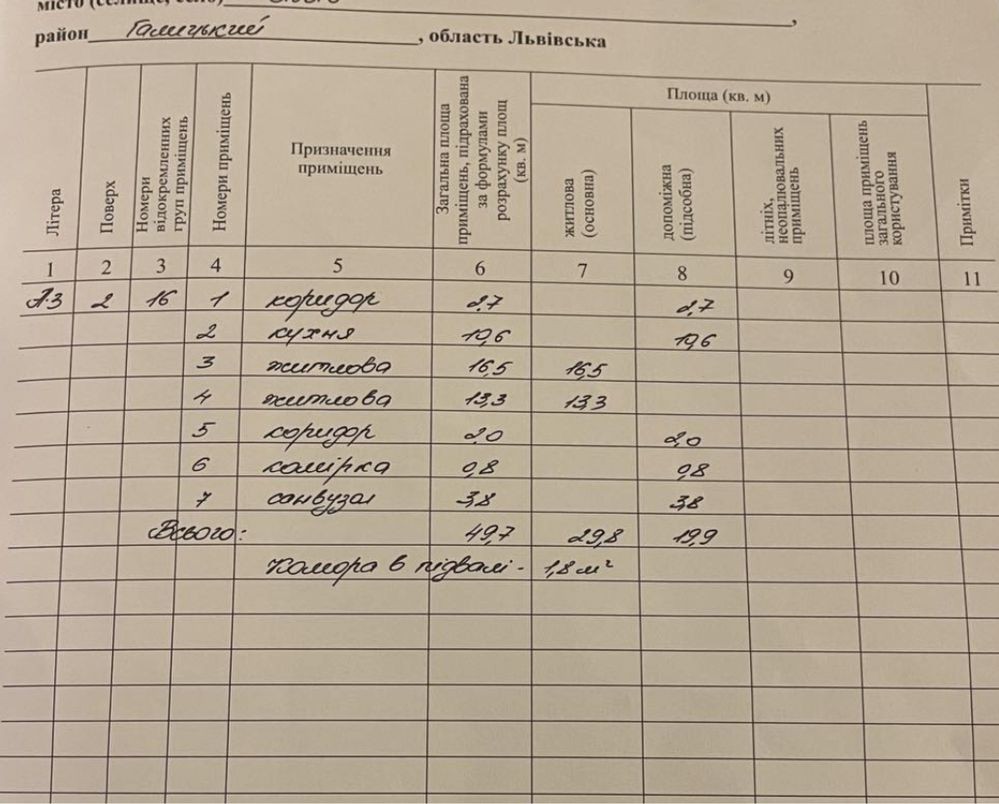 місто (селище, село)
район Галицький, область Львівська
Літера
Поверх
Номери відокремленних груп приміщень
Номери приміщень
Призначення приміщень
Загальна площа приміщень, підрахована за формулами розрахунку площ (кв. м)
Площа (кв. м)
житлова (основна)
допоміжна (підсобна)
літніх, неопалювальних приміщень
площа приміщень загального користування
Примітки
1 2 3 4 5 6 7 8 9 10 11
2 16 1 коридор 2,7 2,7
2 кухня 10,6 10,6
3 житлова 16,5 16,5
4 житлова 13,3 13,3
5 коридор 2,0 2,0
6 комірка 0,8 0,8
7 санвузол 3,8 3,8
Всього: 49,7 29,8 19,9
Комора в підвалі - 1,8 м²